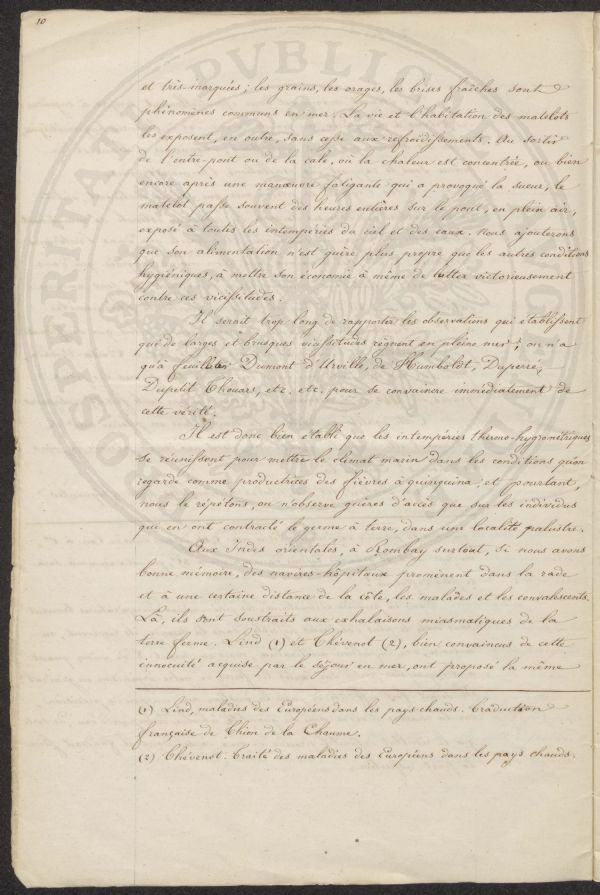 10
et très-marquées; les grains, les orages, les brises fraîches sont
phénomènes communs en mer. La vie et l'habitation des matelots
les exposent, en outre, sans cesse aux refroidissements. Au sortir
de l'entre-pont ou de la cale, où la chaleur est concentrée, ou bien
encore après une manœuvre fatigante qui a provoqué la sueur, le
matelot passe souvent des heures entières sur le pont, en plein air,
exposé à toutes les intempéries du ciel et des eaux. Nous ajouterons
que son alimentation n'est guère plus propre que les autres conditions
hygiéniques, à mettre son économie à même de lutter victorieusement
contre ces vicissitudes.
Il serait trop long de rapporter les observations qui établissent
que de larges et brusques vicissitudes règnent en pleine mer; on n'a
qu'à feuilleter Dumont d'Urville, de Humboldt, Duperré,
Dupetit Thouars, etc. etc. pour se convaincre immédiatement de
cette vérité.
Il est donc bien établi que les intempéries thermo-hygrométriques
se réunissent pour mettre le climat marin dans les conditions qu'on
regarde comme productrices des fièvres à quinquina; et pourtant,
nous le répétons, on n'observe guères d'accès que sur les individus
qui en ont contracté le germe à terre, dans une localité palustre.
Aux Indes orientales, à Bombay surtout, si nous avons
bonne mémoire, des navires-hôpitaux promènent dans la rade
et à une certaine distance de la côte, les malades et les convalescents.
Là, ils sont soustraits aux exhalaisons miasmatiques de la
terre ferme. Lind (1) et Thévenot (2), bien convaincus de cette
innocuité acquise par le séjour en mer, ont proposé la même
(1) Lind, maladies des Européens dans les pays chauds. Traduction
française de Thion de la Chaume.
(2) Thévenot. Traité des maladies des Européens dans les pays chauds.